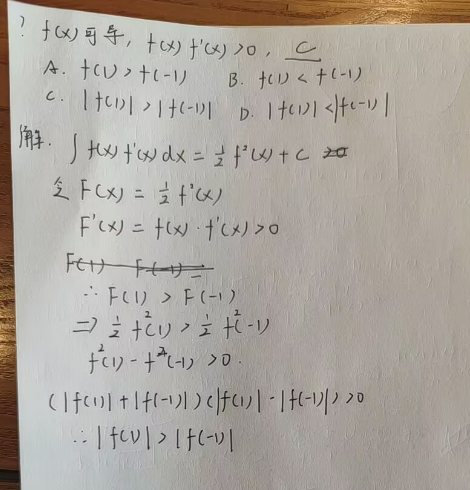 ? f(x)可导, f(x) f'(x) >0, C
A. f(1) > f(-1) B. f(1) < f(-1)
C. |f(1)| > |f(-1)| D. |f(1)| < |f(-1)|
解. ∫ f(x) f'(x) dx = ½ f²(x) + C >0
令 F(x) = ½ f²(x)
F'(x) = f(x) · f'(x) >0
F(1) F(-1) =
∴ F(1) > F(-1)
⇒ ½ f²(1) > ½ f²(-1)
f²(1) - f²(-1) >0.
(|f(1)| + |f(-1)|) (|f(1)| - |f(-1)|) >0
∴ |f(1)| > |f(-1)|